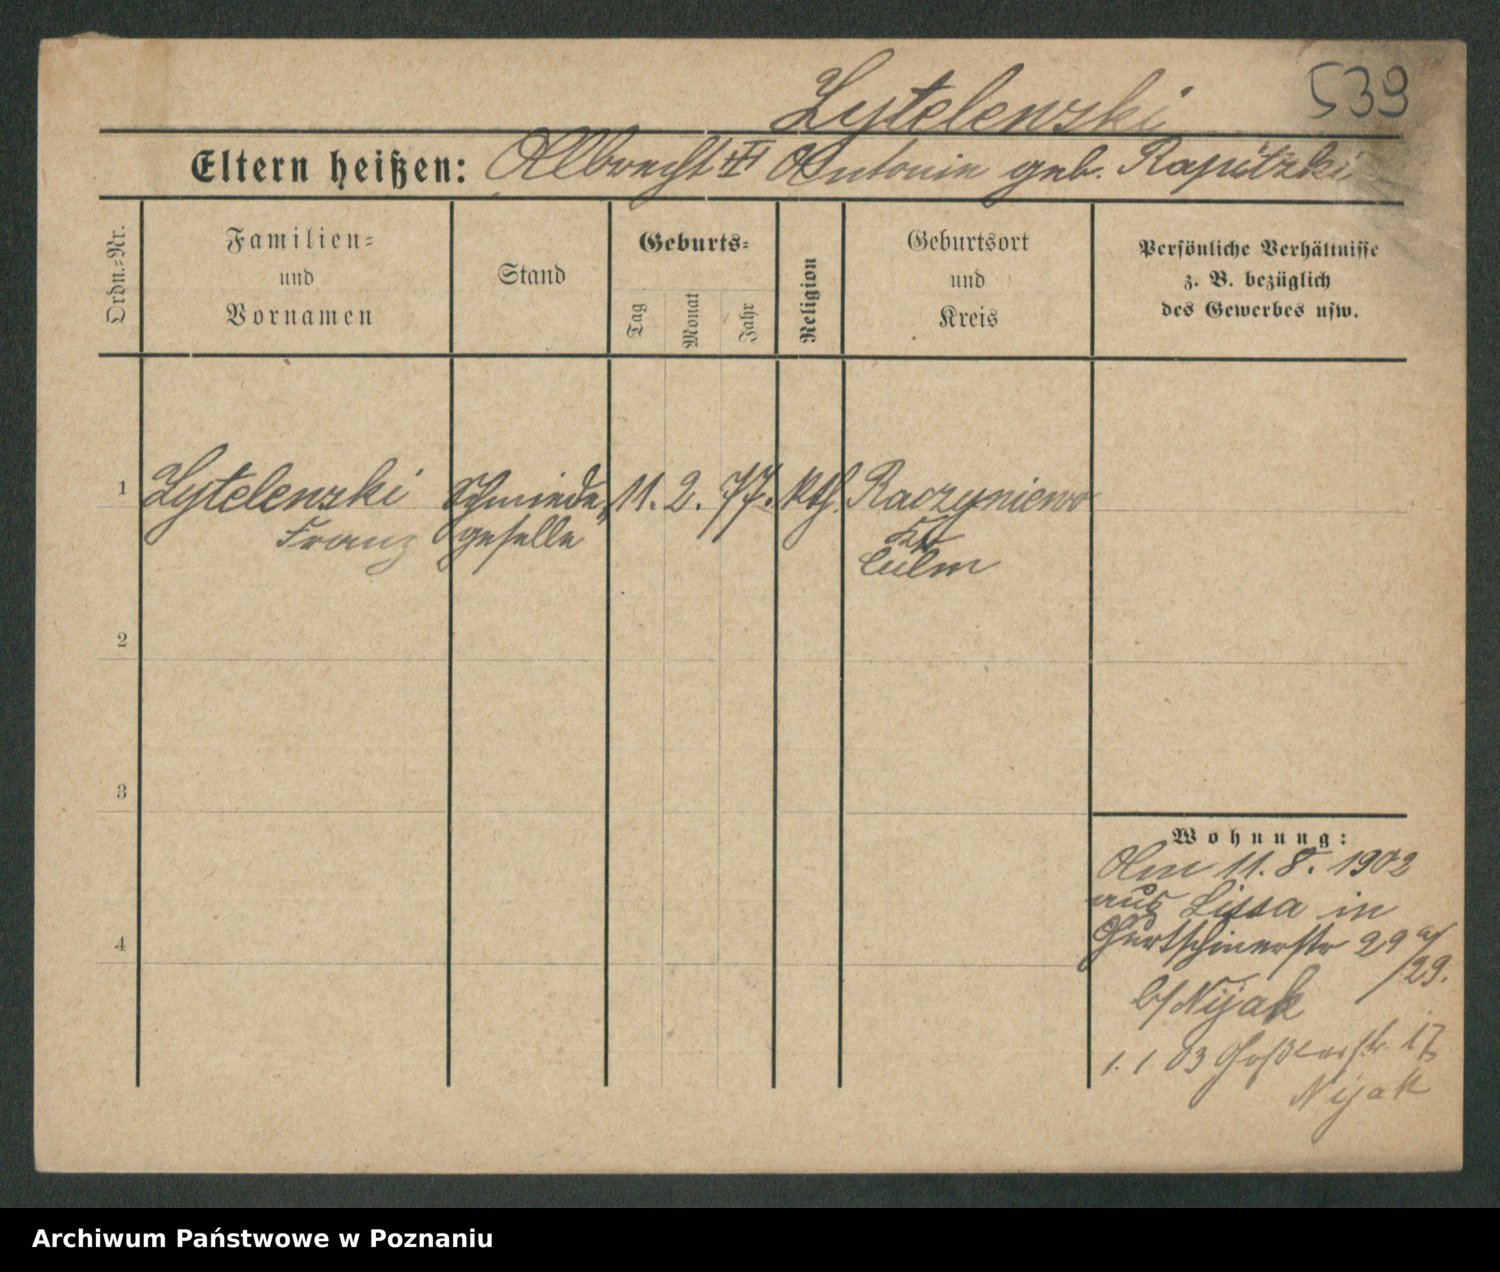 539
Lytelenski
Eltern heißen: Albrecht u Antonie geb. Rapitzki
Ordn.-Nr.
Familien-
und
Vornamen
Stand
Geburts-
Tag
Monat
Jahr
Religion
Geburtsort
und
Kreis
Persönliche Verhältnisse
z. B. bezüglich
des Gewerbes usw.
1 Lytelenski Schmiede 11. 2. 77. kth. Raczyniewo
Franz geselle Kr
Culm
2
3
4
Wohnung:
Am 11. 8. 1902
aus Lissa in
Gurtschinerstr 29 a/
/29.
b/ Nijak
1. 1 03 Goßlerstr. 17
Nijak
Archiwum Państwowe w Poznaniu